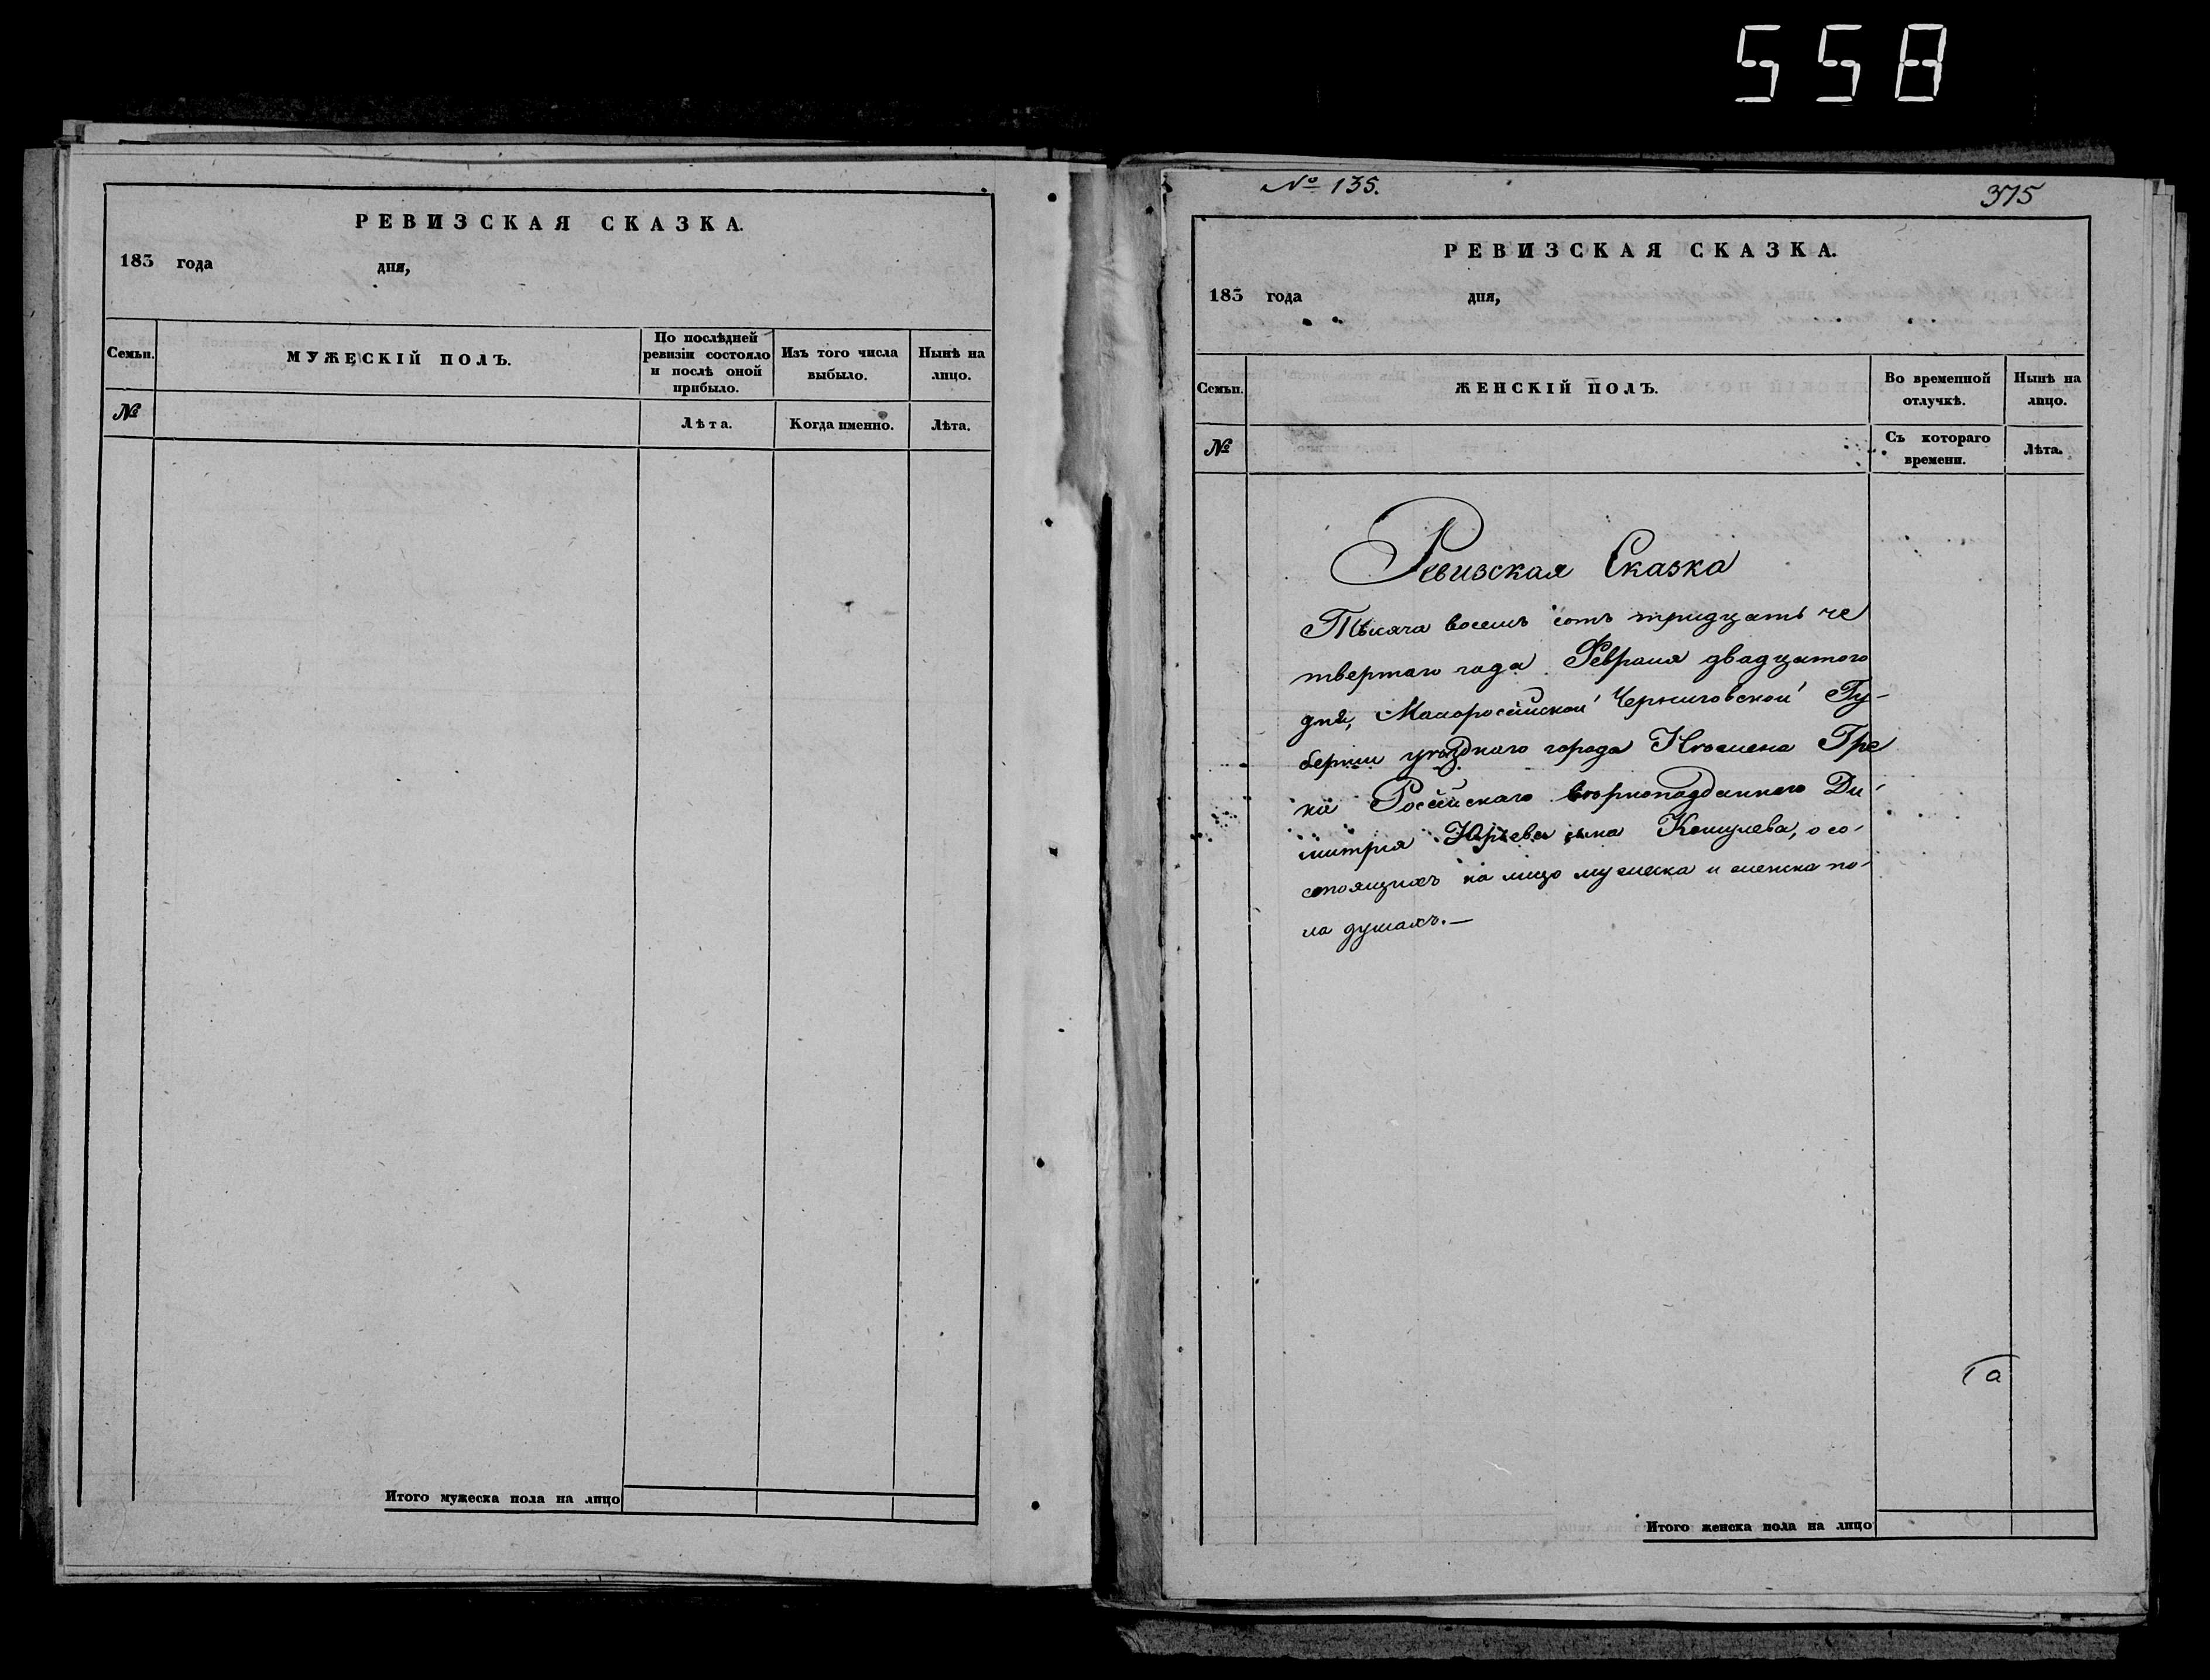 558
РЕВИЗСКАЯ СКАЗКА.
183 года дня,
Семьи.
МУЖЕСКІЙ ПОЛЪ.
По послѣдней
ревизіи состояло
и послѣ оной
прибыло.
Изъ того числа
выбыло.
Нынѣ на
лицо.
№
Лѣта.
Когда именно.
Лѣта.
Итого мужеска пола на лицо
№ 135.
375
РЕВИЗСКАЯ СКАЗКА.
183 года дня,
Семьи.
ЖЕНСКІЙ ПОЛЪ.
Во временной
отлучкѣ.
Нынѣ на
лицо.
№
Съ котораго
времени.
Лѣта.
Ревизская Сказка
Тысяча восемь сотъ тридцать че
твертаго года Февраля двадцатого
дня, Малоросійской Черниговской Гу-
берніи уѣзднаго города Нѣжина Гре
ка Російскаго вѣрноподданнаго Ди-
митрія Юрьева сына, о со-
стоящихъ на лицо мужеска и женска по-
ла душахъ.—
Итого женска пола на лицо